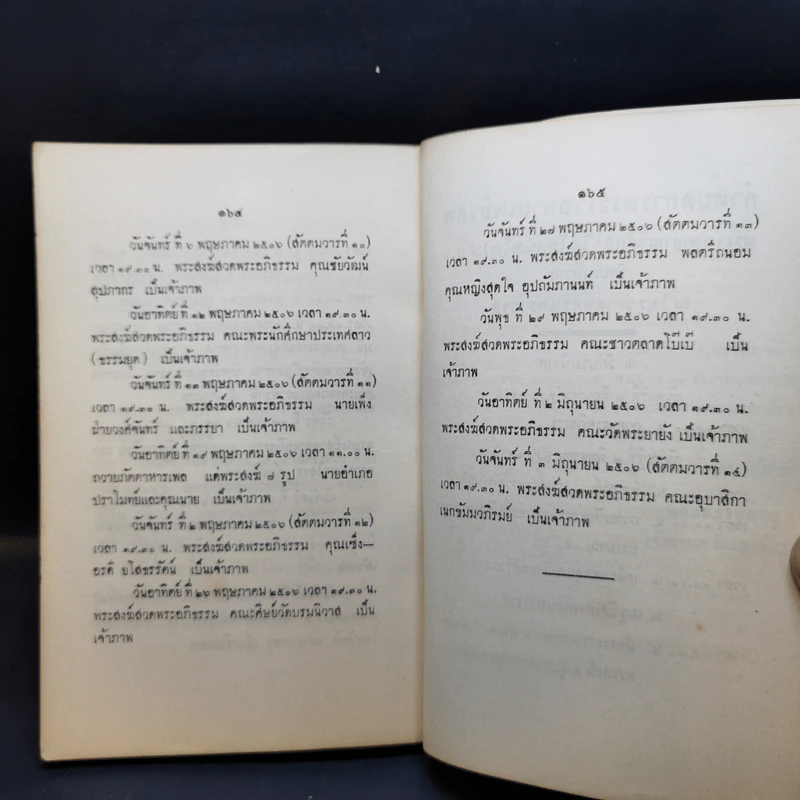 ๑๖๔
วันจันทร์ ที่ ๖ พฤษภาคม ๒๕๐๖ (สัตตมวารที่ ๑๐)
เวลา ๑๙.๓๐ น. พระสงฆ์สวดพระอภิธรรม คุณชัยวัฒน์
สุปภากร เป็นเจ้าภาพ
วันอาทิตย์ ที่ ๑๒ พฤษภาคม ๒๕๐๖ เวลา ๑๙.๓๐ น.
พระสงฆ์สวดพระอภิธรรม คณะพระนักศึกษาประเทศลาว
(ธรรมยุต) เป็นเจ้าภาพ
วันจันทร์ ที่ ๑๓ พฤษภาคม ๒๕๐๖ (สัตตมวารที่ ๑๑)
เวลา ๑๙.๓๐ น. พระสงฆ์สวดพระอภิธรรม นายเพิ่ง
ฝ่ายวงค์จันทร์ และภรรยา เป็นเจ้าภาพ
วันอาทิตย์ ที่ ๑๙ พฤษภาคม ๒๕๐๖ เวลา ๑๑.๐๐ น.
ถวายภัตตาหารเพล แด่พระสงฆ์ ๘ รูป นายอำเภอ
ปราโมทย์และคุณนาย เป็นเจ้าภาพ
วันจันทร์ ที่ ๒ พฤษภาคม ๒๕๐๖ (สัตตมวารที่ ๑๒)
เวลา ๑๙.๓๐ น. พระสงฆ์สวดพระอภิธรรม คุณเซ็ง—
อรดี ยโสธรรัตน์ เป็นเจ้าภาพ
วันอาทิตย์ ที่ ๒๖ พฤษภาคม ๒๕๐๖ เวลา ๑๙.๓๐ น.
พระสงฆ์สวดพระอภิธรรม คณะศิษย์วัดบรมนิวาส เป็น
เจ้าภาพ
๑๖๕
วันจันทร์ ที่ ๒๗ พฤษภาคม ๒๕๐๖ (สัตตมวารที่ ๑๓)
เวลา ๑๙.๓๐ น. พระสงฆ์สวดพระอภิธรรม พลตรีถนอม
คุณหญิงสุดใจ อุปถัมภานนท์ เป็นเจ้าภาพ
วันพุธ ที่ ๒๙ พฤษภาคม ๒๕๐๖ เวลา ๑๙.๓๐ น.
พระสงฆ์สวดพระอภิธรรม คณะชาวตลาดโบ๊เบ๊ เป็น
เจ้าภาพ
วันอาทิตย์ ที่ ๒ มิถุนายน ๒๕๐๖ เวลา ๑๙.๓๐ น.
พระสงฆ์สวดพระอภิธรรม คณะวัดพระยายัง เป็นเจ้าภาพ
วันจันทร์ ที่ ๓ มิถุนายน ๒๕๐๖ (สัตตมวารที่ ๑๔)
เวลา ๑๙.๓๐ น. พระสงฆ์สวดพระอภิธรรม คณะอุบาสิกา
เนกขัมมาภิรมย์ เป็นเจ้าภาพ